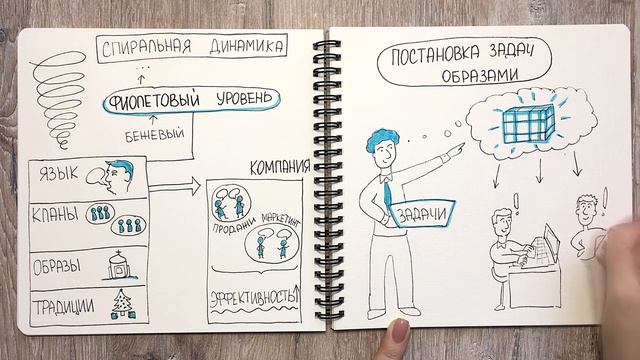 СПИРАЛЬНАЯ ДИНАМИКА
...
ФИОЛЕТОВЫЙ УРОВЕНЬ
БЕЖЕВЫЙ
ЯЗЫК
КЛАНЫ
ОБРАЗЫ
ТРАДИЦИИ
КОМПАНИЯ
ПРОДАЖИ
МАРКЕТИНГ
ЭФФЕКТИВНОСТЬ
ПОСТАНОВКА ЗАДАЧ
ОБРАЗАМИ
ЗАДАЧИ
!
!